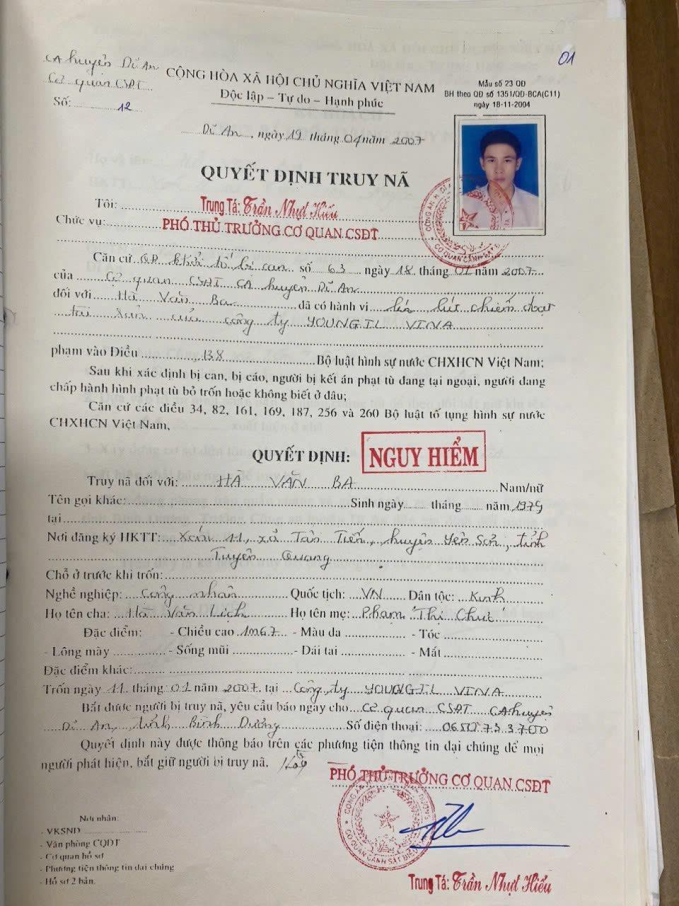 01
CA huyện Dĩ An
Cơ quan CSĐT
Số: 12
CỘNG HÒA XÃ HỘI CHỦ NGHĨA VIỆT NAM
Độc lập – Tự do – Hạnh phúc
Mẫu số 23 QĐ
BH theo QĐ số 1351/QĐ-BCA(C11)
ngày 18-11-2004
Dĩ An, ngày 19 tháng 01 năm 2007
QUYẾT ĐỊNH TRUY NÃ
Tôi: Trung Tá: Trần Nhựt Hiếu
Chức vụ: PHÓ THỦ TRƯỞNG CƠ QUAN CSĐT
Căn cứ QĐ khởi tố bị can số 63 ngày 18 tháng 01 năm 2007
của Cơ quan CSĐT CA huyện Dĩ An
đối với Hà Văn Ba đã có hành vi lén lút chiếm đoạt
tài sản của công ty YOUNGIL VINA
phạm vào Điều 138 Bộ luật hình sự nước CHXHCN Việt Nam;
Sau khi xác định bị can, bị cáo, người bị kết án phạt tù đang tại ngoại, người đang
chấp hành hình phạt tù bỏ trốn hoặc không biết ở đâu;
Căn cứ các điều 34, 82, 161, 169, 187, 256 và 260 Bộ luật tố tụng hình sự nước
CHXHCN Việt Nam,
QUYẾT ĐỊNH: NGUY HIỂM
Truy nã đối với: HÀ VĂN BA Nam/nữ
Tên gọi khác: Sinh ngày tháng năm 1979
tại
Nơi đăng ký HKTT: Xóm 11, xã Tân Tiến, huyện Yên Sơn, tỉnh
Tuyên Quang
Chỗ ở trước khi trốn:
Nghề nghiệp: Công nhân Quốc tịch: VN Dân tộc: Kinh
Họ tên cha: Hà Văn Lịch Họ tên mẹ: Phạm Thị Chút
Đặc điểm: - Chiều cao 1m67 - Màu da - Tóc
- Lông mày - Sống mũi - Dái tai - Mắt
Đặc điểm khác:
Trốn ngày 11 tháng 01 năm 2007 tại Công ty YOUNGIL VINA
Bắt được người bị truy nã, yêu cầu báo ngay cho Cơ quan CSĐT CA huyện
Dĩ An, tỉnh Bình Dương Số điện thoại: 0650.753700
Quyết định này được thông báo trên các phương tiện thông tin đại chúng để mọi
người phát hiện, bắt giữ người bị truy nã.
PHÓ THỦ TRƯỞNG CƠ QUAN CSĐT
Nơi nhận:
- VKSND
- Văn phòng CQĐT
- Cơ quan hồ sơ
- Phương tiện thông tin đại chúng
- Hồ sơ 2 bản.
Trung Tá: Trần Nhựt Hiếu